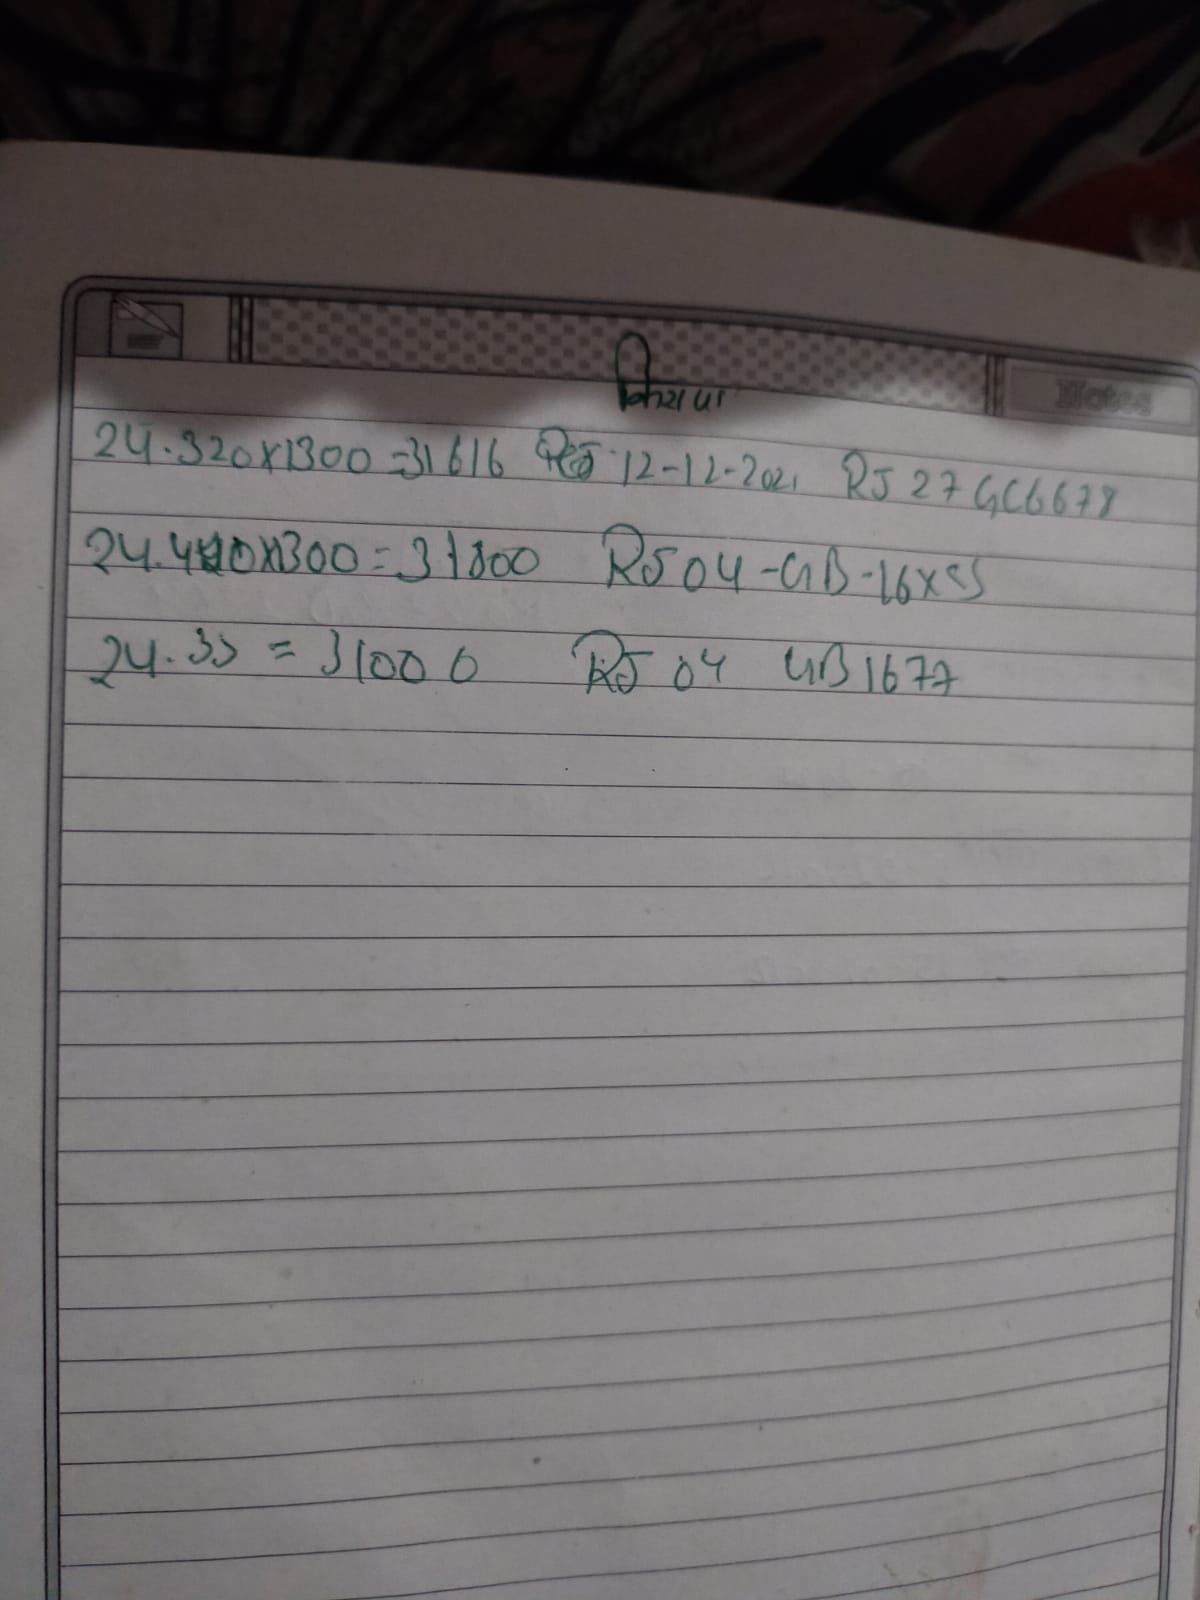 Notes
24.320x1300=31616 12-12-2021 RJ 27 GC6678
24.440x1300=31800 RJ 04-GB-16
24.33 = 31000 RJ 04 GB 1677